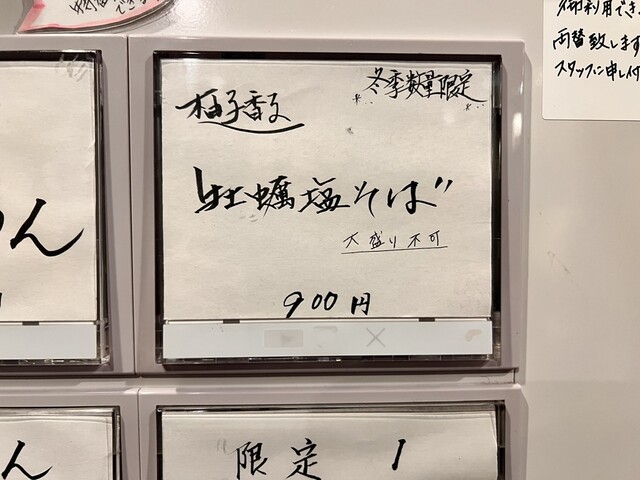 冬季数量限定
柚子香る
牡蠣塩そば
大盛り不可
900円
限定 1
ん
ん
御利用でき
両替致します
スタッフに申し付